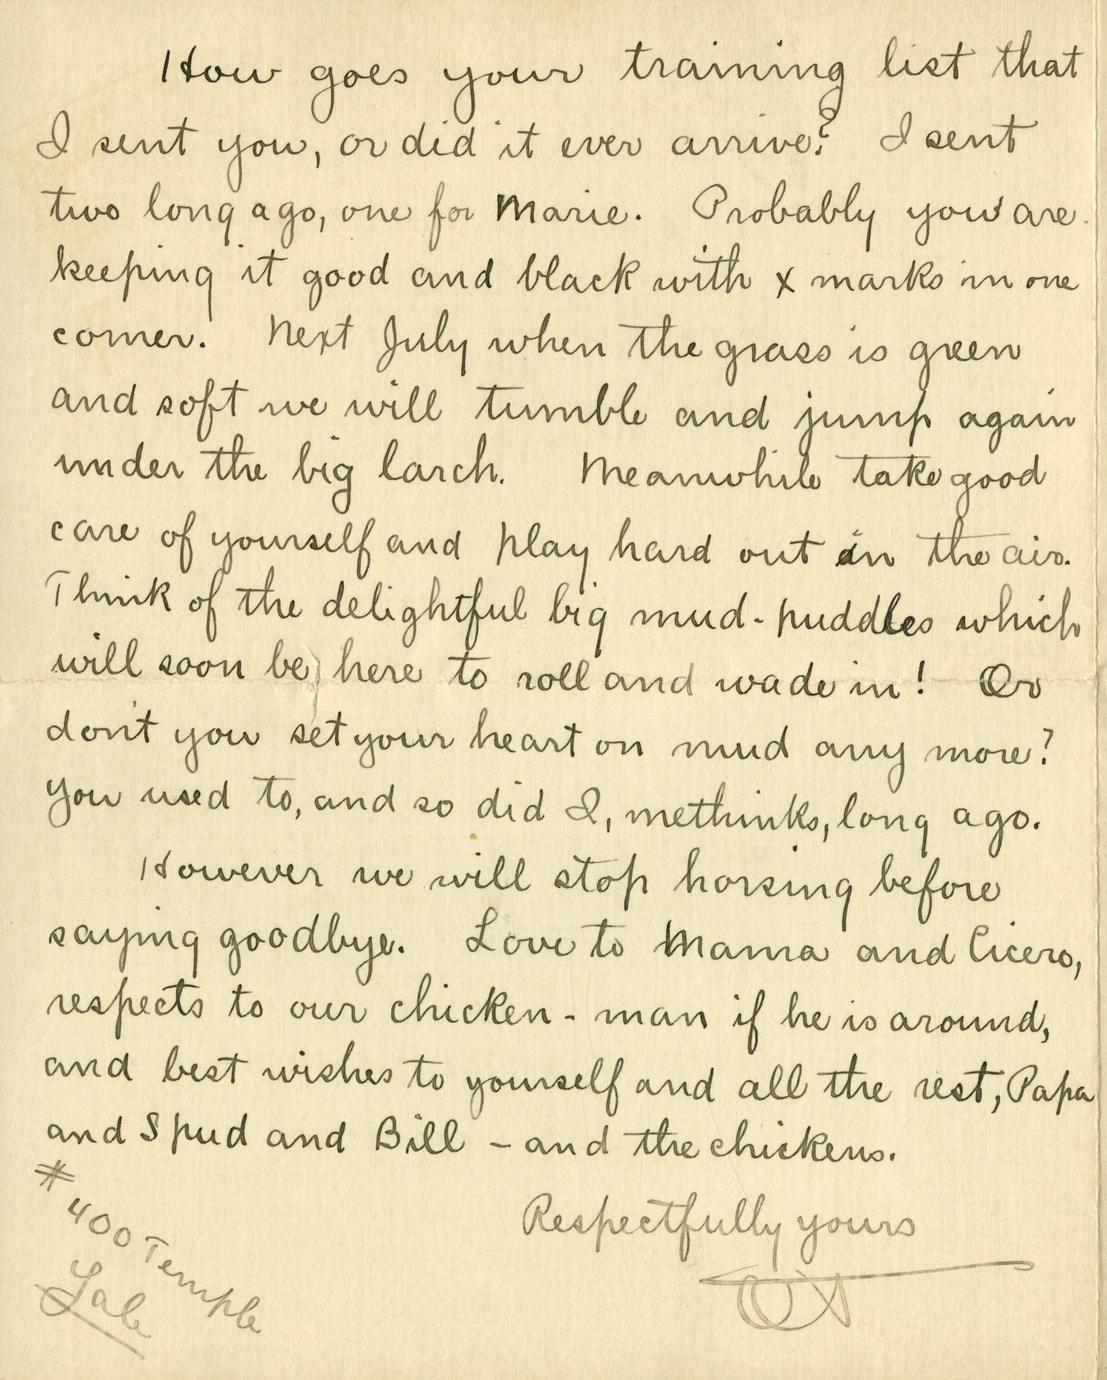 How goes your training list that
I sent you, or did it ever arrive? I sent
two long ago, one for Marie. Probably you are
keeping it good and black with x marks in one
corner. Next July when the grass is green
and soft we will tumble and jump again
under the big larch. Meanwhile take good
care of yourself and play hard out in the air.
Think of the delightful big mud-puddles which
will soon be here to roll and wade in! Or
don't you set your heart on mud any more?
You used to, and so did I, methinks, long ago.
However we will stop horsing before
saying goodbye. Love to Mama and Cicero,
respects to our chicken-man if he is around,
and best wishes to yourself and all the rest, Papa
and Spud and Bill – and the chickens.
Respectfully yours
# 400 Temple